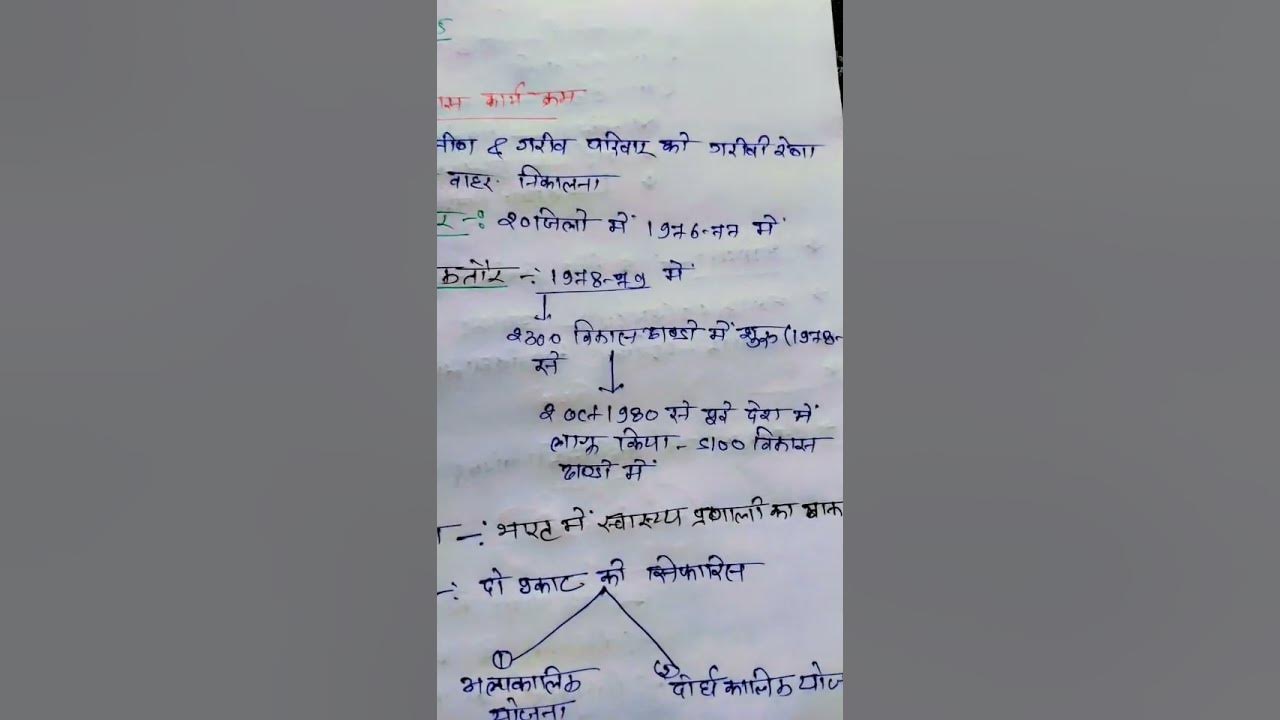 कार्य क्रम
& गरीब परिवार को गरीबी रेखा
बाहर निकालना
२० जिलो में 1976-77 में
1978-79 में
२३०० विकास खण्डो में शुरू (1978-
से
२ oct 1980 से पुरे देश में
लागू किया - 5100 विकास
खण्डो में
भारत में स्वास्थ्य प्रणाली का
दो प्रकार की सिफारिस
①
अल्पकालिक
योजना
②
दीर्घ कालिक योज